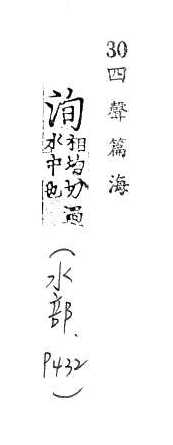 30 四聲篇海
洵 相均切過
水中也
(水部. P432)